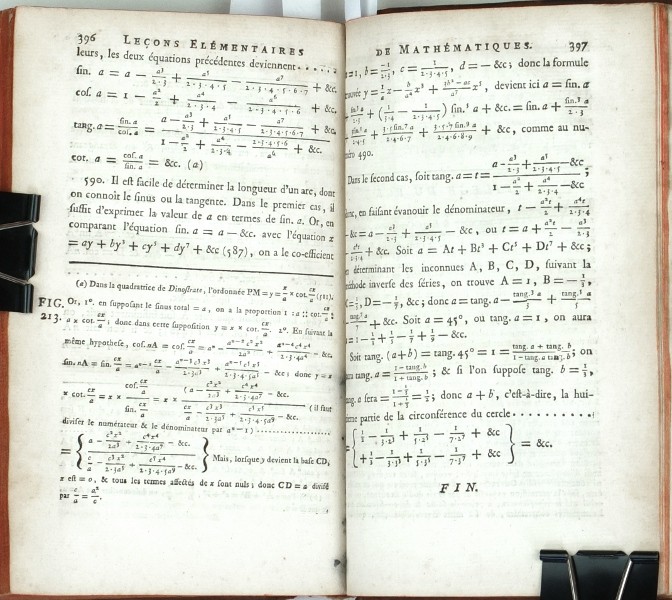 396 LEÇONS ELÉMENTAIRES
leurs, les deux équations précédentes deviennent . . . . .
sin. a = a − a³/2·3 + a⁵/2·3·4·5 − a⁷/2·3·4·5·6·7 + &c.
cos. a = 1 − a²/2 + a⁴/2·3·4 − a⁶/2·3·4·5·6 + &c.
tang. a = sin. a/cos. a = (a − a³/2·3 + a⁵/2·3·4·5 − a⁷/2·3·4·5·6·7 + &c.)/(1 − a²/2 + a⁴/2·3·4 − a⁶/2·3·4·5·6 + &c.)
cot. a = cos. a/sin. a = &c. (a)
590. Il est facile de déterminer la longueur d'un arc, dont
on connoît le sinus ou la tangente. Dans le premier cas, il
suffit d'exprimer la valeur de a en termes de sin. a. Or, en
comparant l'équation sin. a = a − &c. avec l'équation x
= ay + by³ + cy⁵ + dy⁷ + &c (587), on a le co-efficient
(a) Dans la quadratrice de Dinostrate, l'ordonnée PM = y = x × cot. cx/a
FIG. 213.
Or, 1°. en supposant le sinus total = a, on a la proportion 1 : a :: cot. cx/a
a × cot. cx/a ; donc dans cette supposition y = x × cot. cx/a. 2°. En suivant la
même hypothese, cos. nA = cos. cx/a = aⁿ − &c.
sin. nA = sin. cx/a = &c ; donc y = x
× cot. cx/a = x × cos. cx/a / sin. cx/a = x × ( il faut
diviser le numérateur & le dénominateur par aⁿ⁻¹ ) . . . . .
Mais, lorsque y devient la base CD,
x est = 0, & tous les termes affectés de x sont nuls ; donc CD = a divisé
par c/a = a²/c.
DE MATHÉMATIQUES. 397
c = 1/2·3·4·5, d = − &c ; donc la formule
devient ici a = sin. a
+ &c. = sin. a + sin.³ a/2·3
+ &c, comme au nu-
490.
Dans le second cas, soit tang. a = t = (a − a³/2·3 + a⁵/2·3·4·5 − &c)/(1 − a²/2 + a⁴/2·3·4 − &c) ;
en faisant évanouir le dénominateur, t − a²t/2 + a⁴t/2·3·4
− &c = a − a³/2·3 + a⁵/2·3·4·5 − &c, ou t = a + a²t/2 − a³/2·3
+ &c. Soit a = At + Bt³ + Ct⁵ + Dt⁷ + &c ;
déterminant les inconnues A, B, C, D, suivant la
inverse des séries, on trouve A = 1, B = − 1/3,
C = 1/5, D = − 1/7, &c ; donc a = tang. a − tang.³ a/3 + tang.⁵ a/5
+ &c. Soit a = 45°, ou tang. a = 1, on aura
1 − 1/3 + 1/5 − 1/7 + 1/9 − &c.
Soit tang. (a + b) = tang. 45° = 1 = (tang. a + tang. b)/(1 − tang. a tang. b) ; on
aura tang. a = (1 − tang. b)/(1 + tang. b) ; & si l'on suppose tang. b = 1/3,
tang. a sera = 1/2 ; donc a + b, c'est-à-dire, la hui-
partie de la circonférence du cercle . . . . . . . . . .
= { 1/2 − 1/3·2³ + 1/5·2⁵ − 1/7·2⁷ + &c
+ 1/3 − 1/3·3³ + 1/5·3⁵ − 1/7·3⁷ + &c } = &c.
FIN.